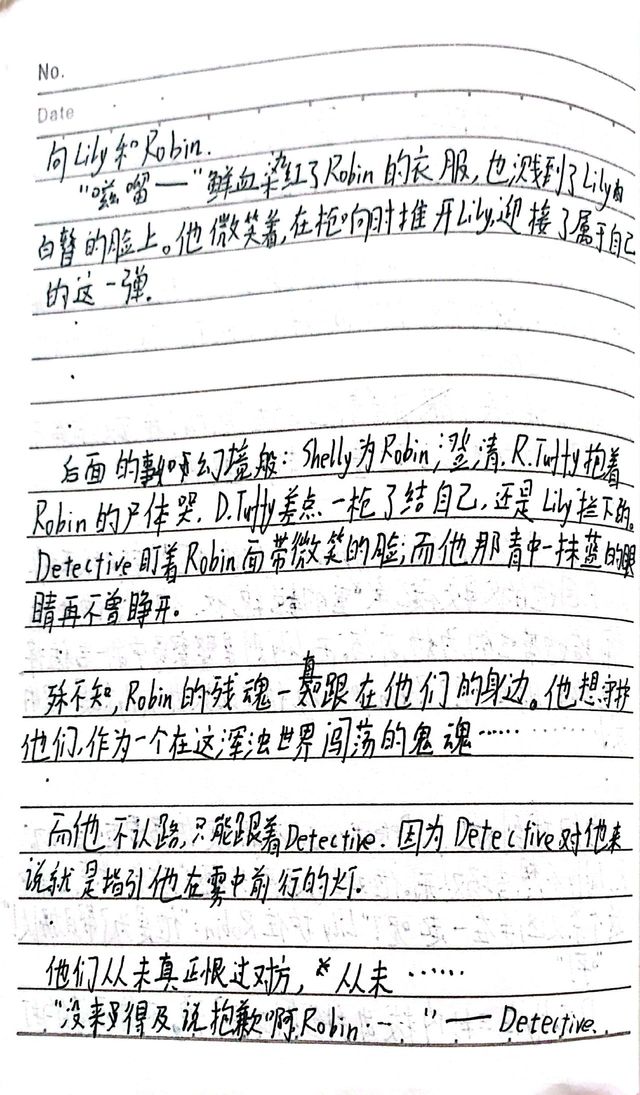 No.
Date
向Lily和Robin.
"嗞嘧—"鲜血染红了Robin的衣服,也溅到了Lily的
白皙的脸上。他微笑着,在枪响时推开Lily,迎接了属于自己
的这一弹.
后面的事如同幻境般：Shelly为Robin澄清.R.Tuffy抱着
Robin的尸体哭.D.Tuffy差点一枪了结自己,还是Lily拦下的。
Detective盯着Robin面带微笑的脸;而他那青中一抹蓝的眼
睛再不曾睁开.
殊不知,Robin的残魂一真跟在他们的身边。他想守护
他们,作为一个在这浑浊世界闯荡的鬼魂……
而他不认路,只能跟着Detective.因为Detective对他来
说就是指引他在雾中前行的灯.
他们从未真正恨过对方,从未……
"没来得及说抱歉啊,Robin…"——Detective.